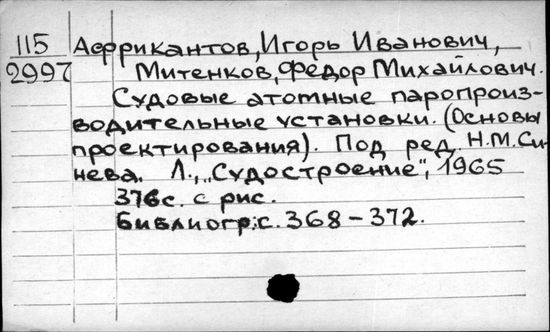 115 Африкантов, Игорь Иванович,
2997 Митенков, Федор Михайлович.
Судовые атомные паропроиз-
водительные установки. (Основы
проектирования). Под ред. Н.М.Си-
нева. Л., „Судостроение", 1965
376с. с рис.
Библиогр.: с. 368-372.